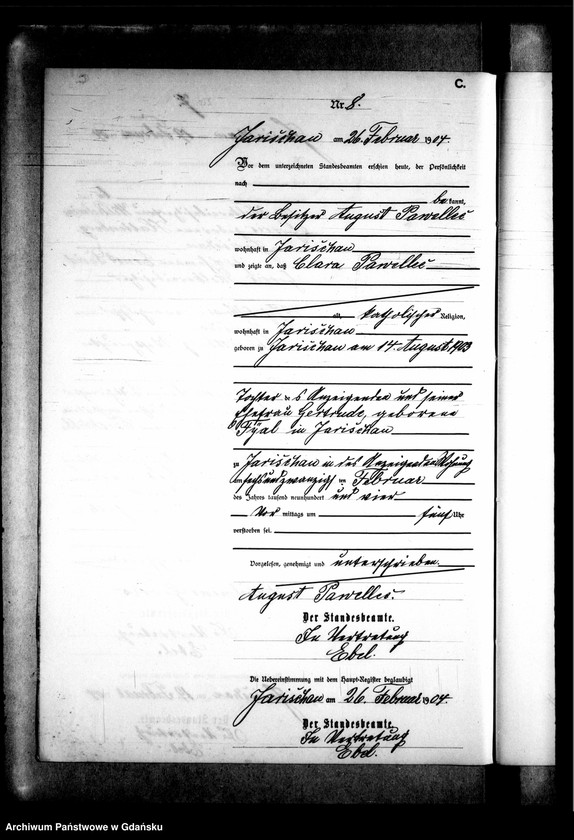 C.
Nr. 8.
Jarischau am 26. Februar 1904.
Vor dem unterzeichneten Standesbeamten erschien heute, der Persönlichkeit
nach
bekannt,
der Besitzer August Pawelles
wohnhaft in Jarischau
und zeigte an, daß Clara Pawelles
alt, katholischer Religion,
wohnhaft in Jarischau
geboren zu Jarischau am 14. August 1903
Tochter des Anzeigenden und seiner
Ehefrau Gertrude, geborene
in Jarischau
zu Jarischau in des Anzeigenden Wohnung
am sechsundzwanzigsten Februar
des Jahres tausend neunhundert und vier
Vor mittags um fünf Uhr
verstorben sei.
Vorgelesen, genehmigt und unterschrieben.
August Pawelles.
Der Standesbeamte.
In Vertretung
Ebel.
Die Uebereinstimmung mit dem Haupt-Register beglaubigt
Jarischau am 26. Februar 1904.
Der Standesbeamte.
In Vertretung
Ebel.
Archiwum Państwowe w Gdańsku